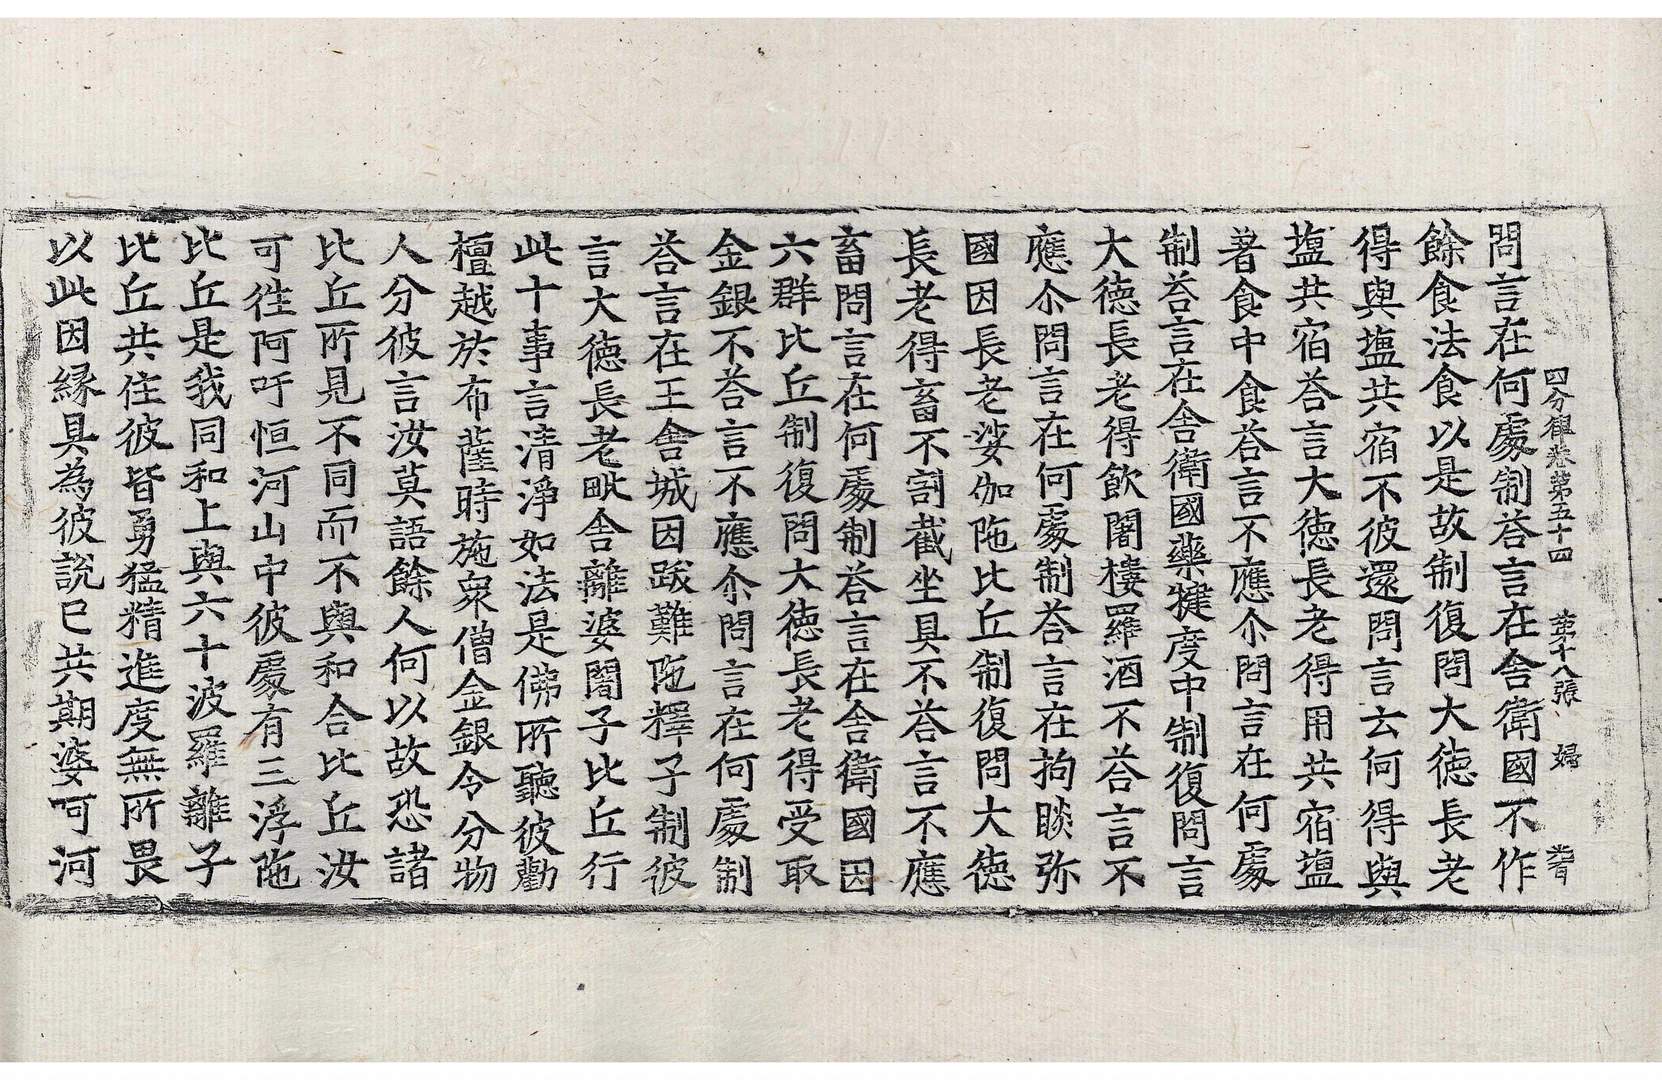 四分律卷第五十四　第十八張　婦
問言在何處制荅言在舍衛國不作
餘食法食以是故制復問大德長老
得與塩共宿不彼還問言云何得與
塩共宿荅言大德長老得用共宿塩
著食中食荅言不應尒問言在何處
制荅言在舍衛國藥揵度中制復問言
大德長老得飲闍樓羅酒不荅言不
應尒問言在何處制荅言在拘睒弥
國因長老娑伽陁比丘制復問大德
長老得畜不割截坐具不荅言不應
畜問言在何處制荅言在舍衛國因
六群比丘制復問大德長老得受取
金銀不荅言不應尒問言在何處制
荅言在王舍城因跋難陁釋子制彼
言大德長老毗舍離婆闍子比丘行
此十事言清淨如法是佛所聽彼勸
檀越於布薩時施衆僧金銀令分物
人分彼言汝莫語餘人何以故恐諸
比丘所見不同而不與和合比丘汝
可徃阿吁恒河山中彼處有三浮陁
比丘是我同和上與六十波羅離子
比丘共住彼皆勇猛精進度無所畏
以此因縁具為彼說已共期婆呵河